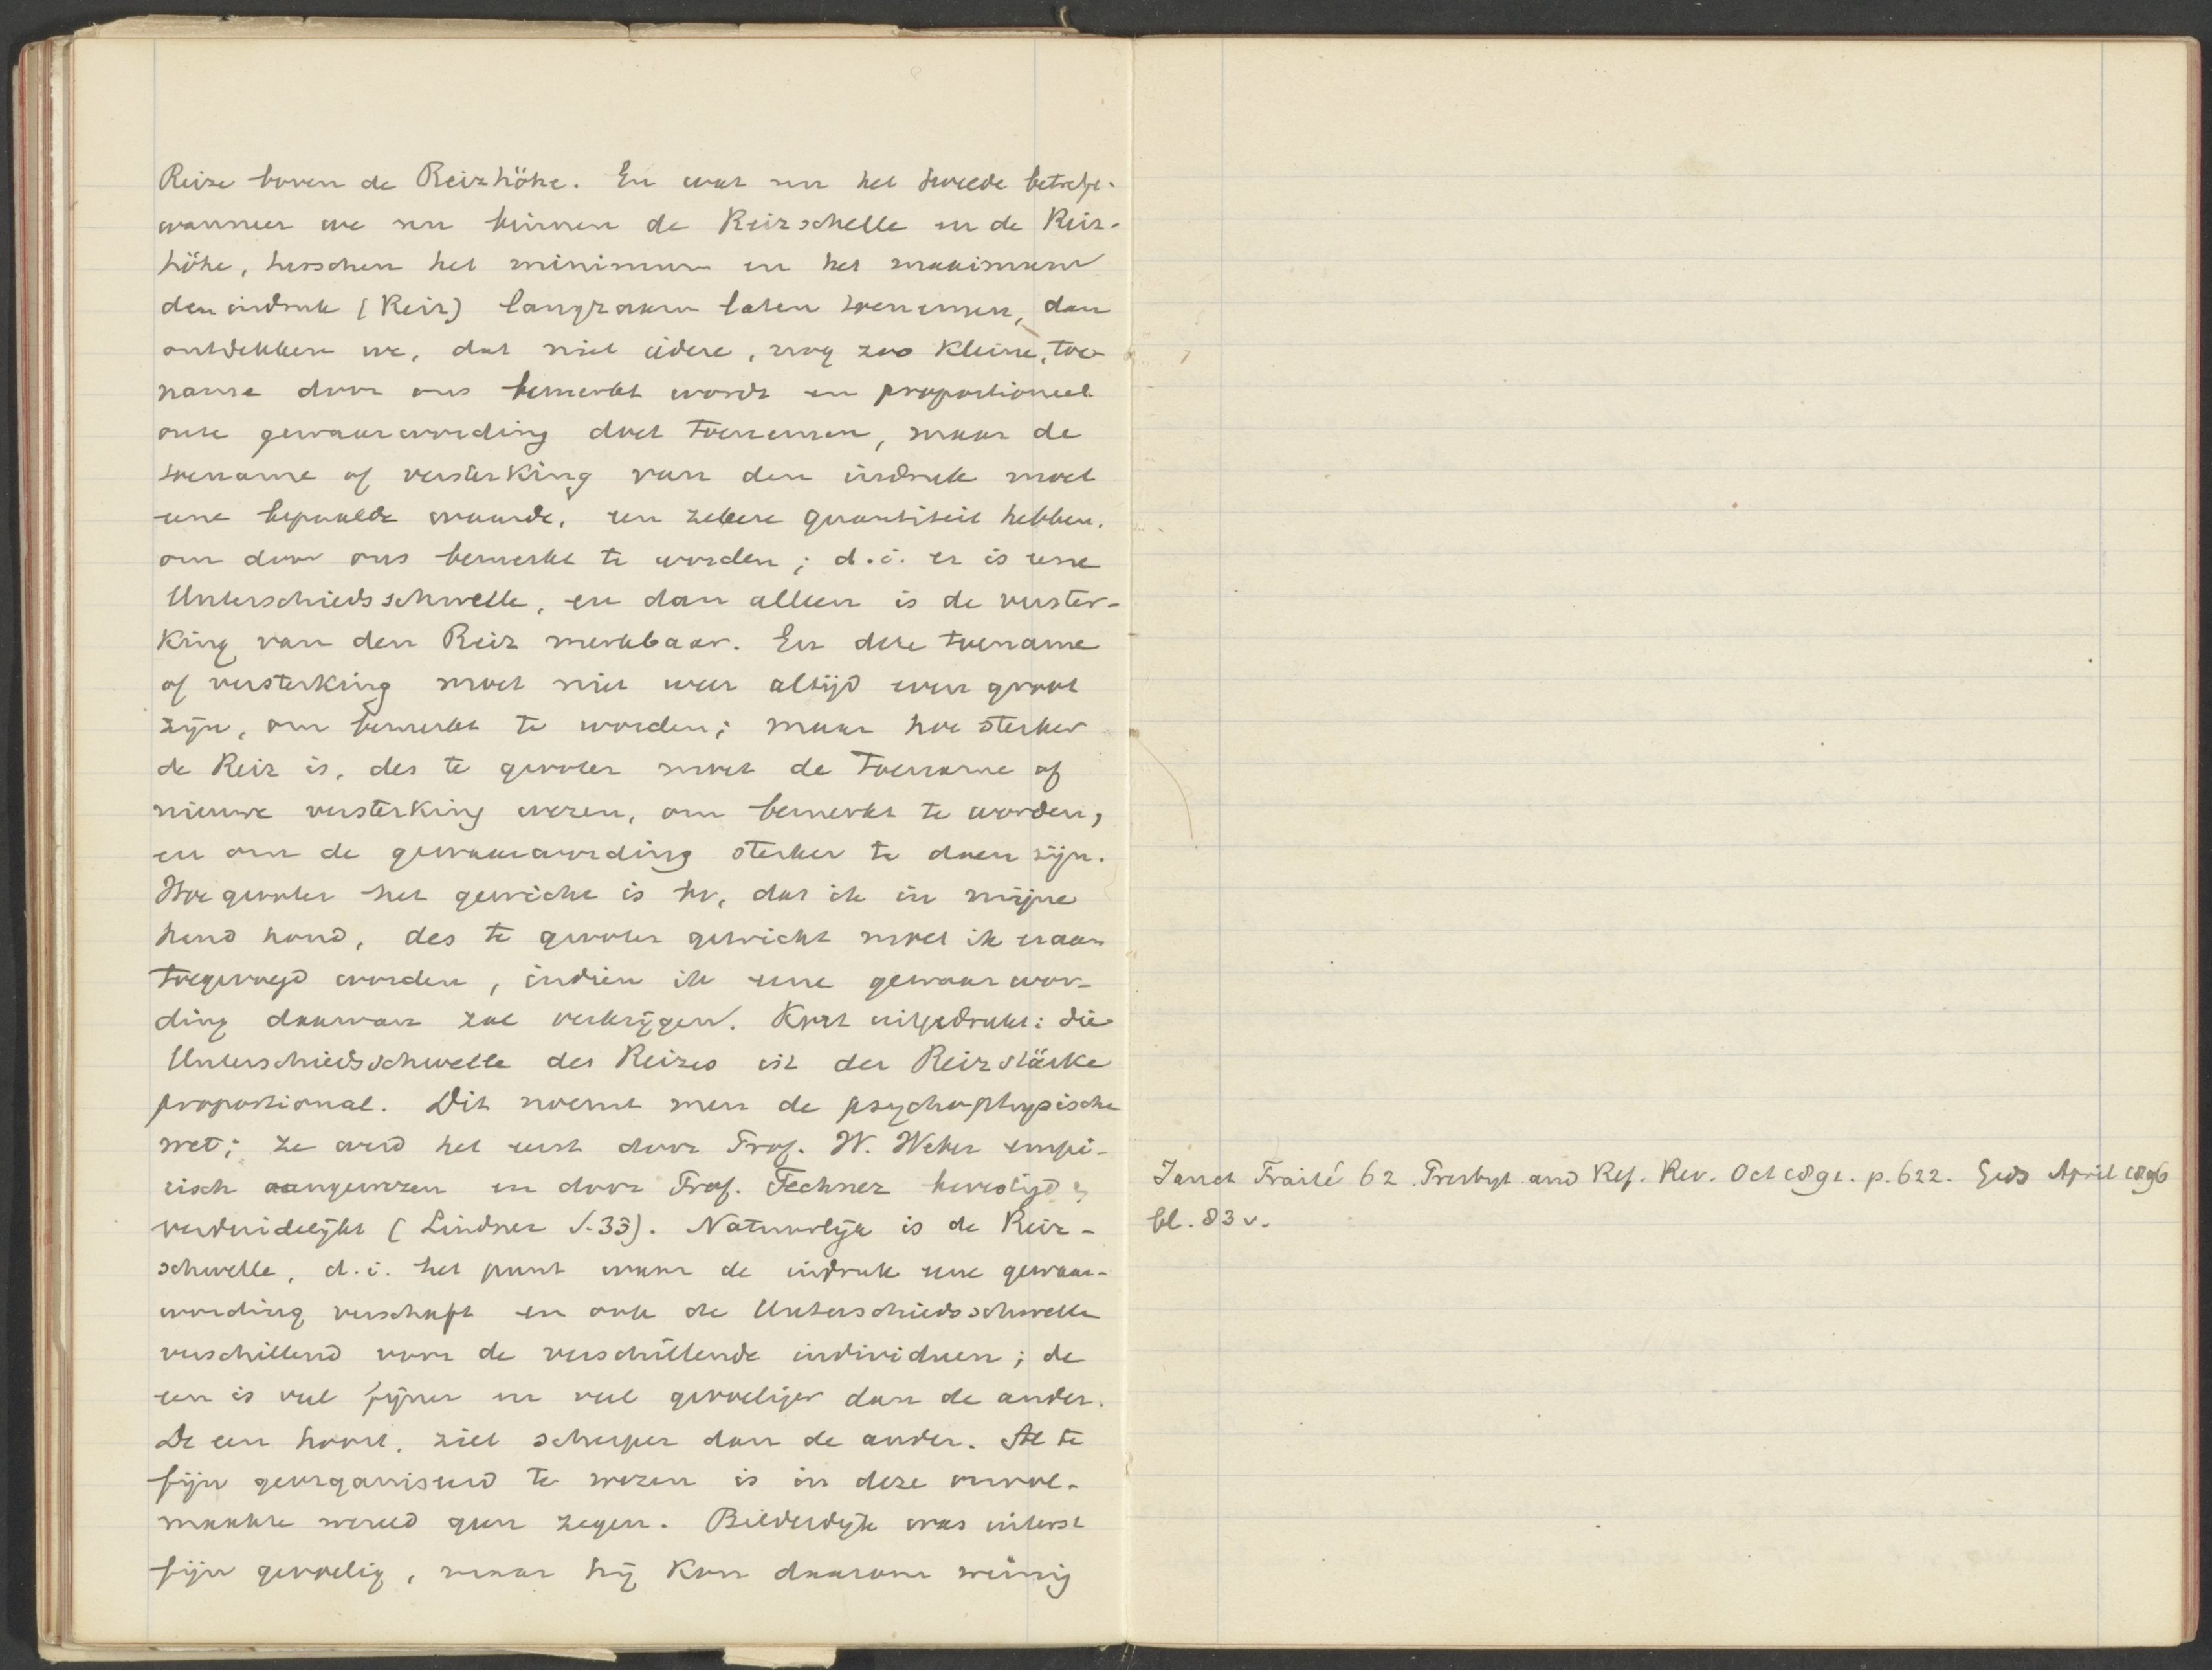 Reize boven de Reizhöhe. En wat nu het tweede betreft.
wanneer we nu binnen de Reizschelle en de Reiz-
höhe, tusschen het minimum en het maximum
den indruk (Reiz) langzaam laten toenemen, dan
ontdekken we, dat niet iedere, nog zoo kleine, toe
name door ons bemerkt wordt en proportioneel
onze gewaarwording doet toenemen, maar de
toename of versterking van den indruk moet
eene bepaalde waarde, een zekere quantiteit hebben.
om door ons bemerkt te worden; d.i. er is eene
Unterschiedsschwelle, en dan alleen is de verster-
king van den Reiz merkbaar. En deze toename
of versterking moet niet weer altijd even groot
zijn, om bemerkt te worden; maar hoe sterker
de Reiz is, des te grooter moet de toename of
nieuwe versterking wezen, om bemerkt te worden,
en om de gewaarwording sterker te doen zijn.
Hoe grooter het gewicht is bv, dat ik in mijne
hand houd, des te grooter gewicht moet ik eraan
toegevoegd worden, indien ik eene gewaarwor-
ding daarvan zal verkrijgen. Kort uitgedrukt: die
Unterschiedsschwelle des Reizes ist der Reizstärke
proportional. Dit noemt men de psychophysische
wet; ze werd het eerst door Prof. W. Weber empi-
risch aangewezen en door Prof. Fechner bevestigd &
verduidelijkt (Lindner S. 33). Natuurlijk is de Reiz-
schwelle, d.i. het punt waar de indruk eene gewaar-
wording verschaft en ook de Unterschiedsschwelle
verschillend voor de verschillende individuen; de
een is veel fijner en veel gevoeliger dan de ander.
De een hoort, ziet scherper dan de ander. Al te
fijn georganiseerd te wezen is in deze onvol-
maakte wereld geen zegen. Bilderdijk was uiterst
fijn gevoelig, maar hij kon daarom weinig
Janet Traité 62. Presbyt and Ref. Rev. Oct 1891. p. 622. Gids April 1896
bl. 83 v.